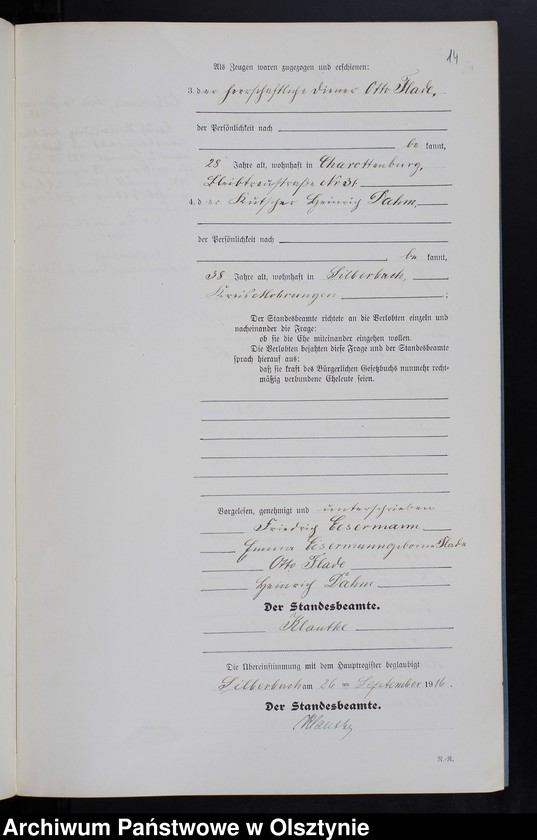 14
Als Zeugen waren zugezogen und erschienen:
3. der herrschaftliche Diener Otto Flade,
der Persönlichkeit nach
be kannt,
28 Jahre alt, wohnhaft in Charottenburg,
Bleibtreustraße Nr 31
4. der Kutscher Heinrich Dahm,
der Persönlichkeit nach
be kannt,
38 Jahre alt, wohnhaft in Silberbach,
Kreis Mohrungen ;
Der Standesbeamte richtete an die Verlobten einzeln und
nacheinander die Frage:
ob sie die Ehe miteinander eingehen wollen.
Die Verlobten bejahten diese Frage und der Standesbeamte
sprach hierauf aus:
daß sie kraft des Bürgerlichen Gesetzbuchs nunmehr recht-
mäßig verbundene Eheleute seien.
Vorgelesen, genehmigt und unterschrieben
Friedrich Eisermann
Emma Eisermann geborne Flade
Otto Flade
Heinrich Dahm
Der Standesbeamte.
Klautke
Die Übereinstimmung mit dem Hauptregister beglaubigt
Silberbach am 26 ten September 1916.
Der Standesbeamte.
Klautke
R.-R.
Archiwum Państwowe w Olsztynie